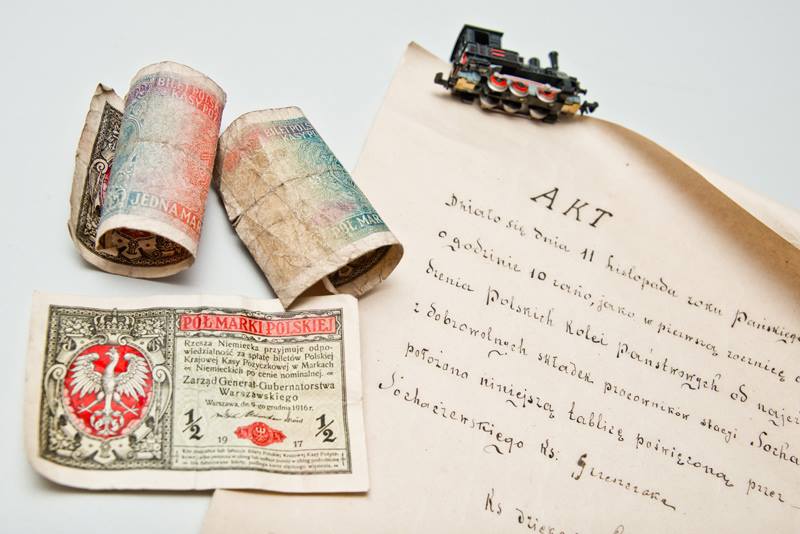 BILET POLS
KASY POŻ
JEDNA MA
BILET POLS
KASY PO
PÓŁ MAR
PÓŁ MARKI POLSKIEJ
Rzesza Niemiecka przyjmuje odpo-
wiedzialność za spłatę biletów Polskiej
Krajowej Kasy Pożyczkowej w Markach
Niemieckich po cenie nominalnej.
Zarząd General-Gubernatorstwa
Warszawskiego
Warszawa, dn. 9-go grudnia 1916 r.
1/2 1/2
19 17
AKT
Działo się dnia 11 listopada roku Pańskiego
o godzinie 10 rano, jako w pierwszą rocznicę o
dzenia Polskich Kolei Państwowych od najez
z dobrowolnych składek pracowników stacji Socha
położono niniejszą tablicę poświęconą przez
Sochaczewskiego Ks.
Ks